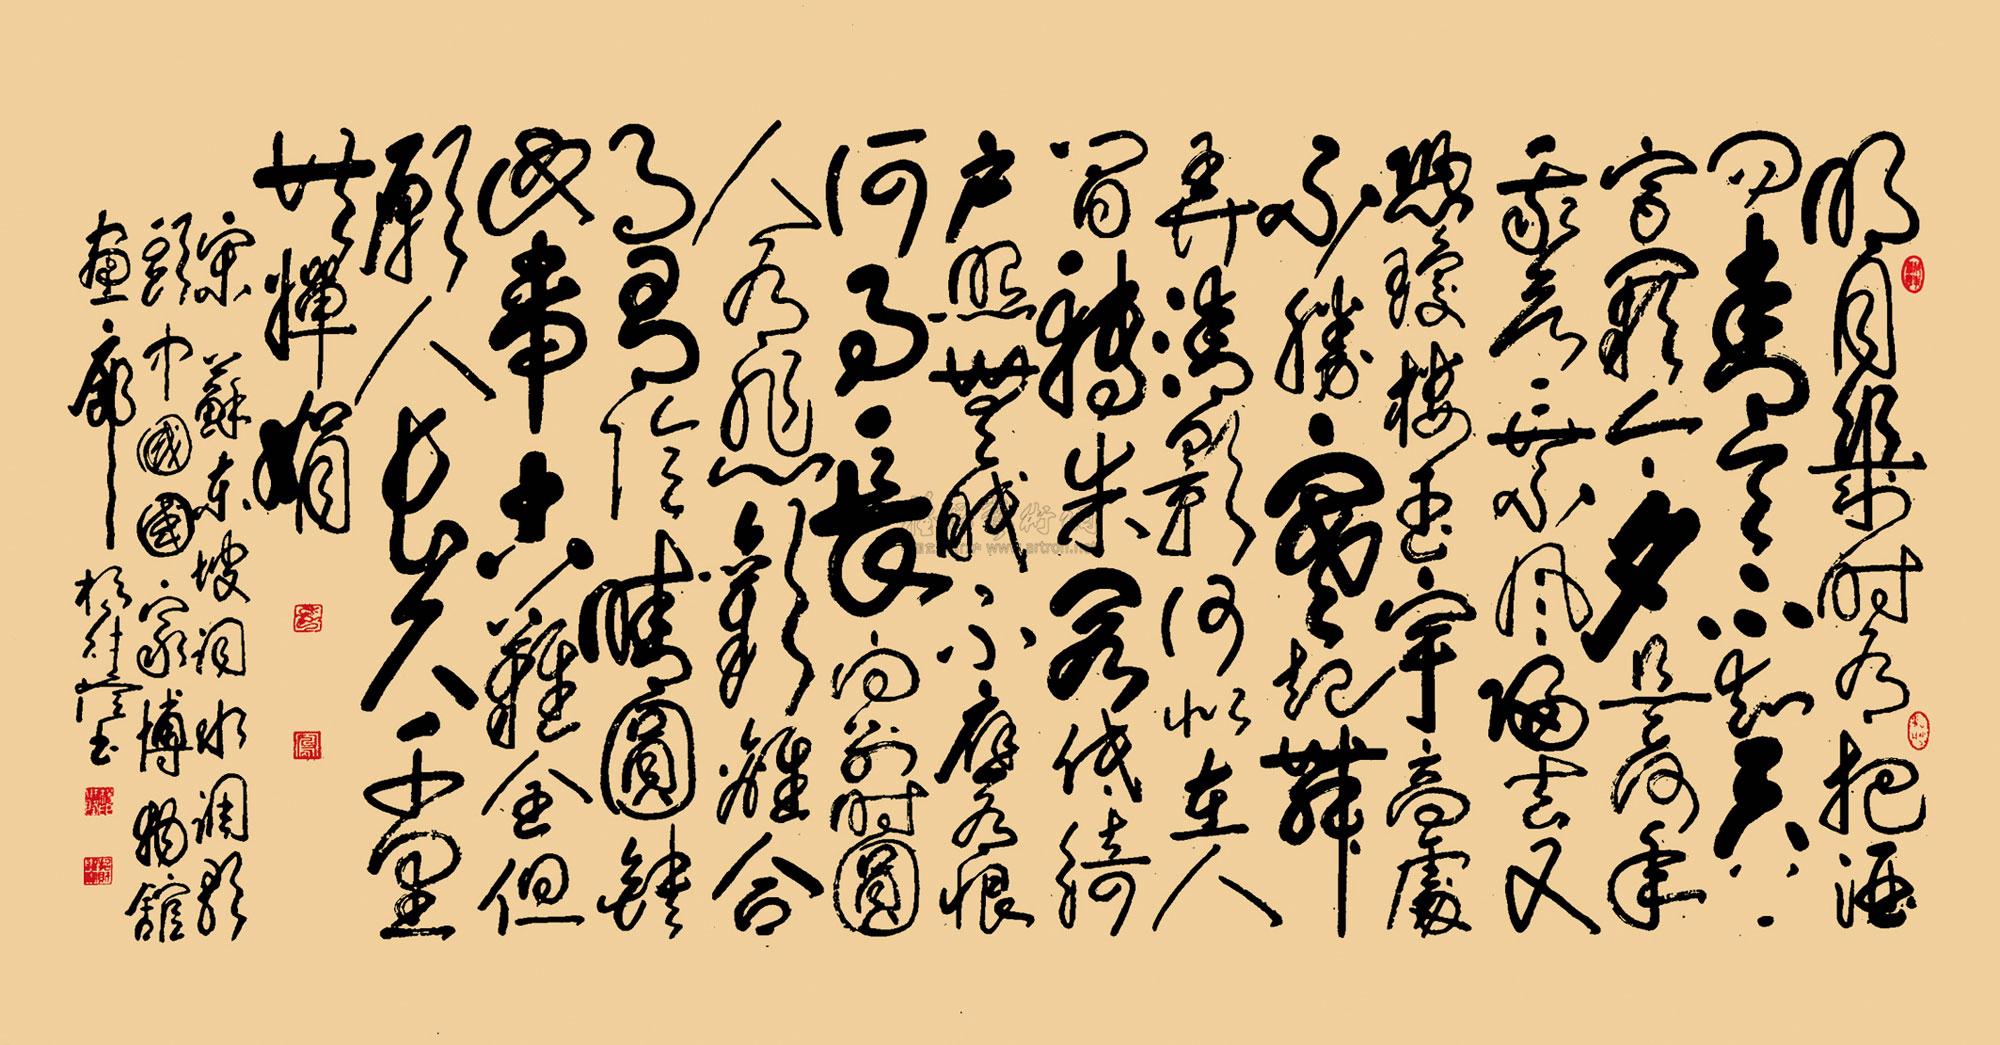 明月幾时有把酒
問青天不知天上
宮闕今夕是何年
我欲乘風歸去又
恐瓊樓玉宇高處
不勝寒起舞
弄清影何似在人
間轉朱閣低綺
戶照無眠不應有恨
何事長向別时圓
人有悲歡離合
月有陰晴圓缺
此事古難全但
願人長久千里
共嬋娟
宋蘇東坡詞水調歌
頭中國國家博物館
畫廊
www.artron.net